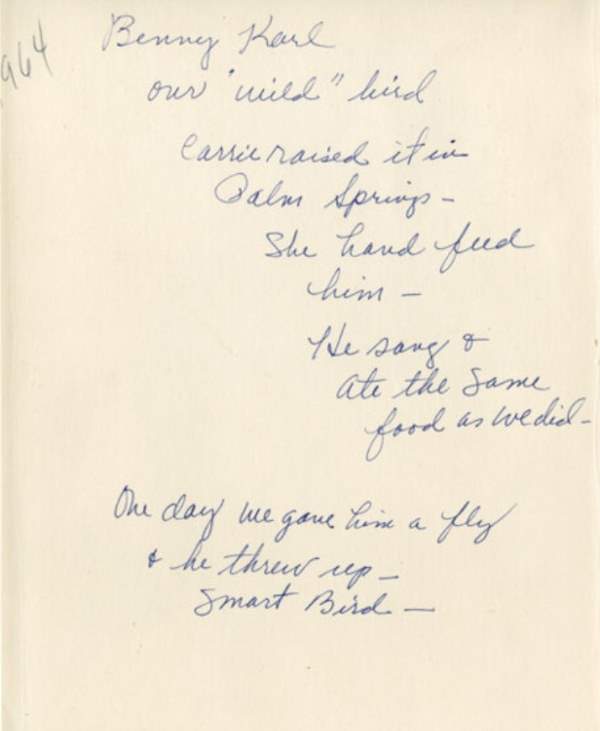 964
Benny Karl
our "wild" bird
Carrie raised it in
Palm Springs -
She hand feed
him -
He sang &
ate the same
food as we did -
One day we gave him a fly
& he threw up -
Smart Bird -